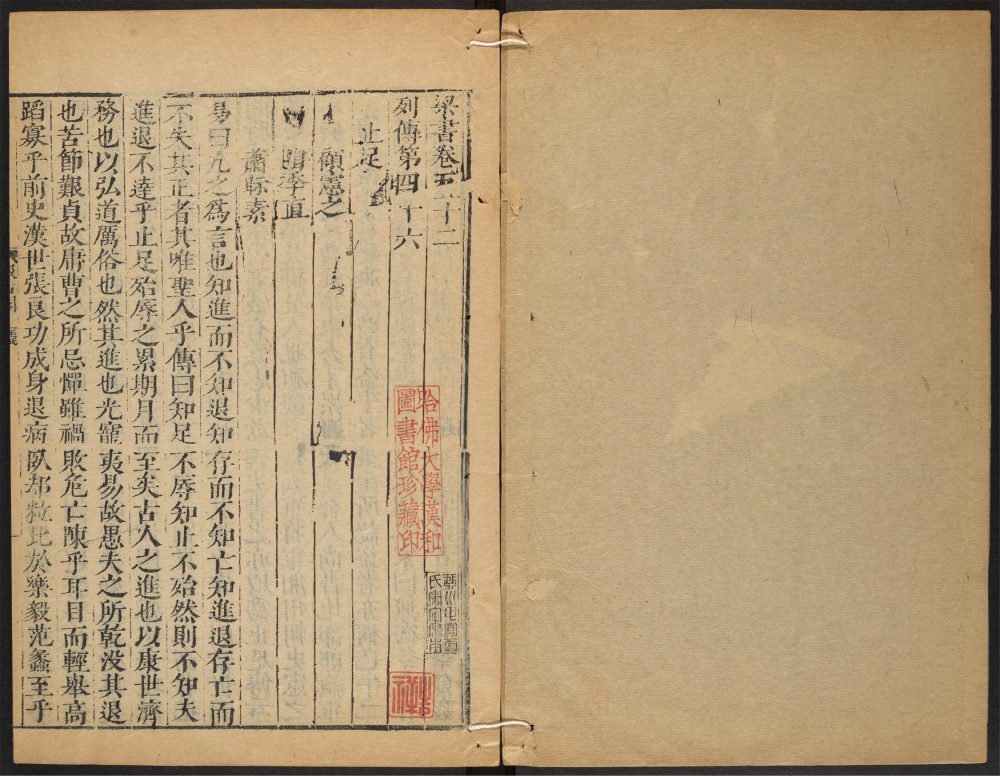 梁書卷五十二
列傳第四十六
止足
顧憲之
陶季直
蕭眎素
易曰亢之為言也知進而不知退知存而不知亡知進退存亡而
不失其正者其唯聖人乎傳曰知足不辱知止不殆然則不知夫
進退不達乎止足殆辱之累期月而至矣古人之進也以康世濟
務也以弘道厲俗也然其進也光寵夷易故愚夫之所乾没其退
也苦節艱貞故庸曹之所忌憚雖禍敗危亡陳乎耳目而輕舉高
蹈寡乎前史漢世張良功成身退病臥却粒比於樂毅范蠡至乎
哈佛大學漢和
圖書館珍藏印